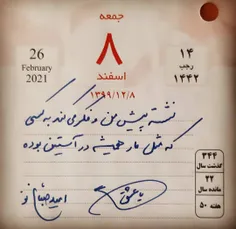 جمعه
26
February
2021
۸
اسفند
۱۳۹۹/۱۲/۸
۱۴
رجب
۱۴۴۲
نشسته پیش من و فکر می‌کند به کسی
که مثل مار همیشه در آستین بوده
۳۴۴
گذشت سال
۲۲
مانده سال
هفته ۵۰
یا عشق
امید صباغ نو